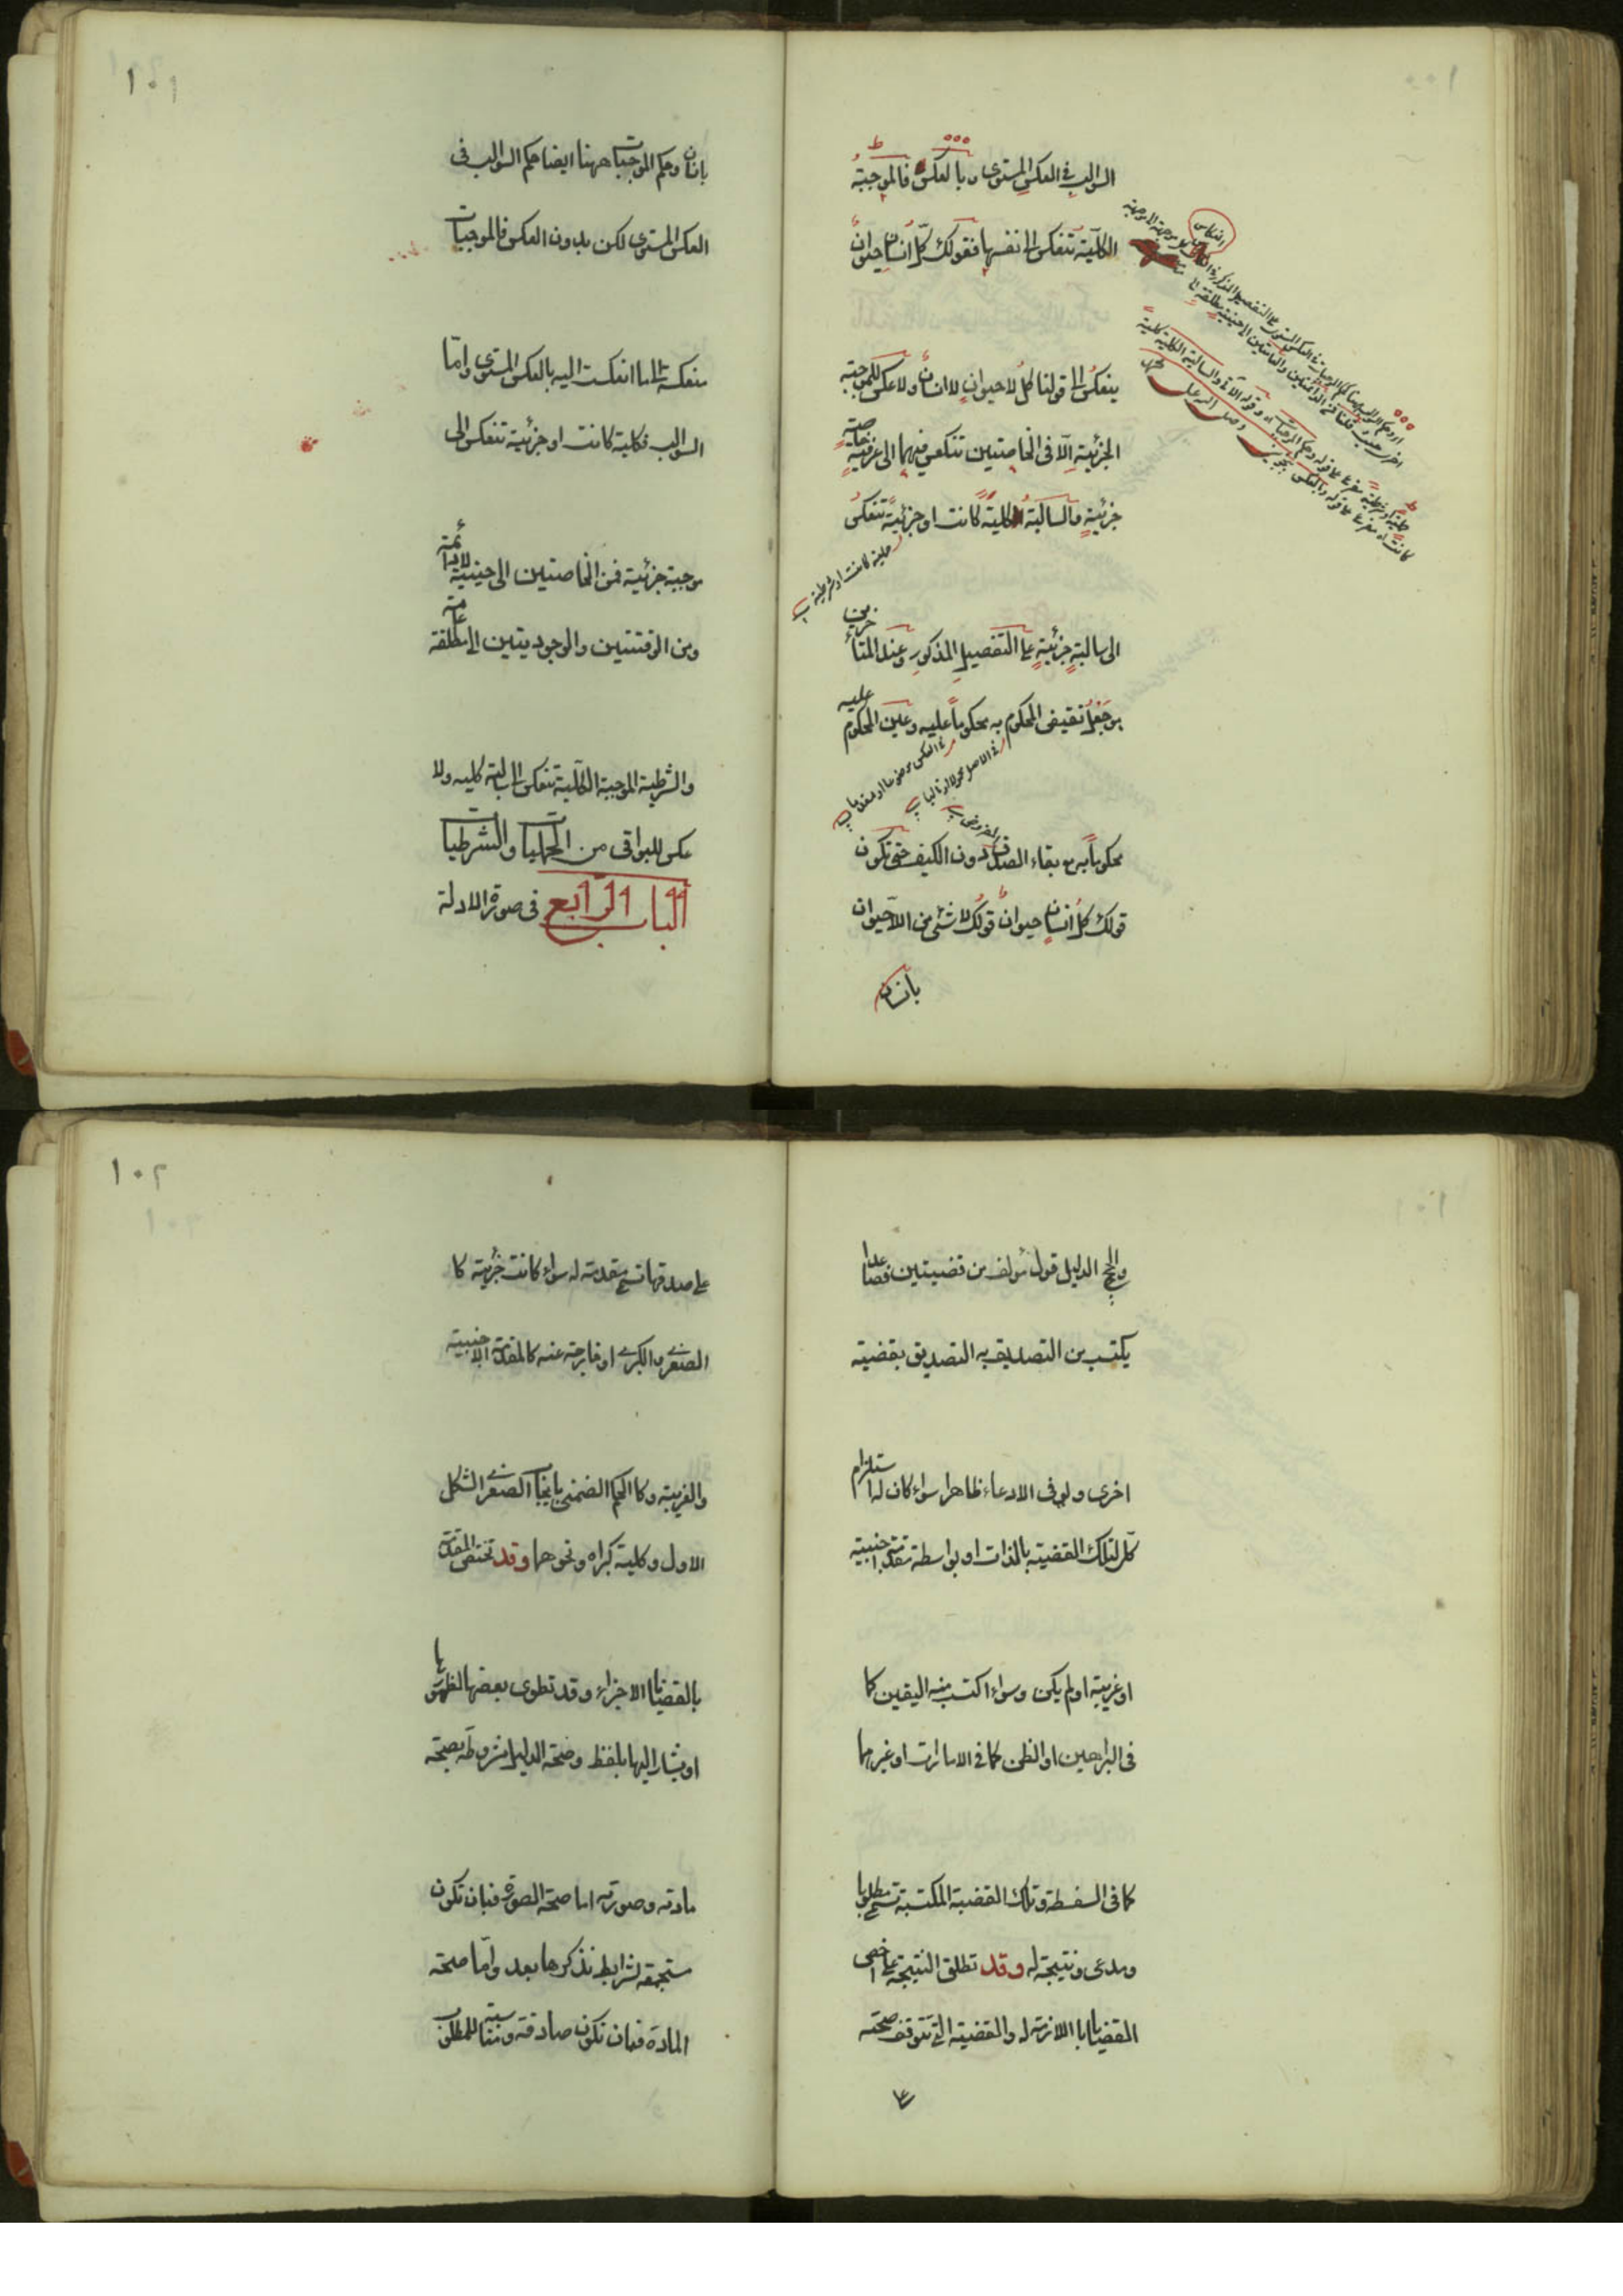 السوالب في العكس المستوى وبالعكس فالموجبة
الكلية تنعكس الى نفسها فقولك كل انسان حيوان
ينعكس الى قولنا كل لا حيوان لا انسان ولا عكس للموجبة
الجزئية الا فى الخاصتين تنعكس فيهما الى عرفية خاصة
جزئية والسالبة كلية كانت او جزئية تنعكس
حملية كانت او شرطية
الى سالبة جزئية على التفصيل المذكور وعند المتأخرين
جعل نقيض المحكوم به محكوما عليه وعين المحكوم عليه
محكوما به مع بقاء الصدق دون الكيف حتى تكون
قولك كل انسان حيوان قولك لا شئ من اللاحيوان
بانسان
١٠١
بانسان وحكم الموجبات ههنا ايضا حكم السوالب فى
العكس المستوى لكن بدون العكس فالموجبات
منعكسة الى ما انعكست اليه بالعكس المستوى واما
السوالب فكلية كانت او جزئية تنعكس الى
موجبة جزئية فمن الخاصتين الى حينية لا دائمة
ومن الوقتيتين والوجوديتين الى مطلقة عامة
والشرطية الموجبة الكلية تنعكس الى سالبة كلية ولا
عكس للبواقى من الحمليات والشرطيات
الباب الرابع فى صورة الادلة
والحجج الدليل قول مؤلف من قضيتين فصاعدا
يكتسب من التصديق به التصديق بقضية
اخرى ولو فى الادعاء ظاهرا سواء كان له استلزام
كلى لتلك القضية بالذات او بواسطة مقدمة اجنبية
او غريبة او لم يكن وسواء اكتسب منه اليقين كما
فى البراهين او الظن كما فى الامارات او غيرهما
كما فى السفسطة وتلك القضية المكتسبة تسمى مطلوبا
ومدعى ونتيجة له وقد تطلق النتيجة على اخص
القضايا اللازمة له والقضية التى تتوقف صحته
على
١٠٢
على صدقها تسمى مقدمة له سواء كانت جزئية كا
الصغرى والكبرى او خارجة عنه كالمقدمة الاجنبية
والغريبة وكا الحكم الضمنى بايجاب الصغرى الشكل
الاول وكلية كبراه ونحوهما وقد تختص المقدمة
بالقضايا الاجزاء وقد تطوى بعضها لظهورها
او يشار اليها بلفظ وصحة الدليل مشروطة بصحة
مادته وصورته اما صحة الصورة فبان تكون
مستجمعة لشرايط نذكرها بعد واما صحة
المادة فبان تكون صادقة ومناسبة للمطلوب